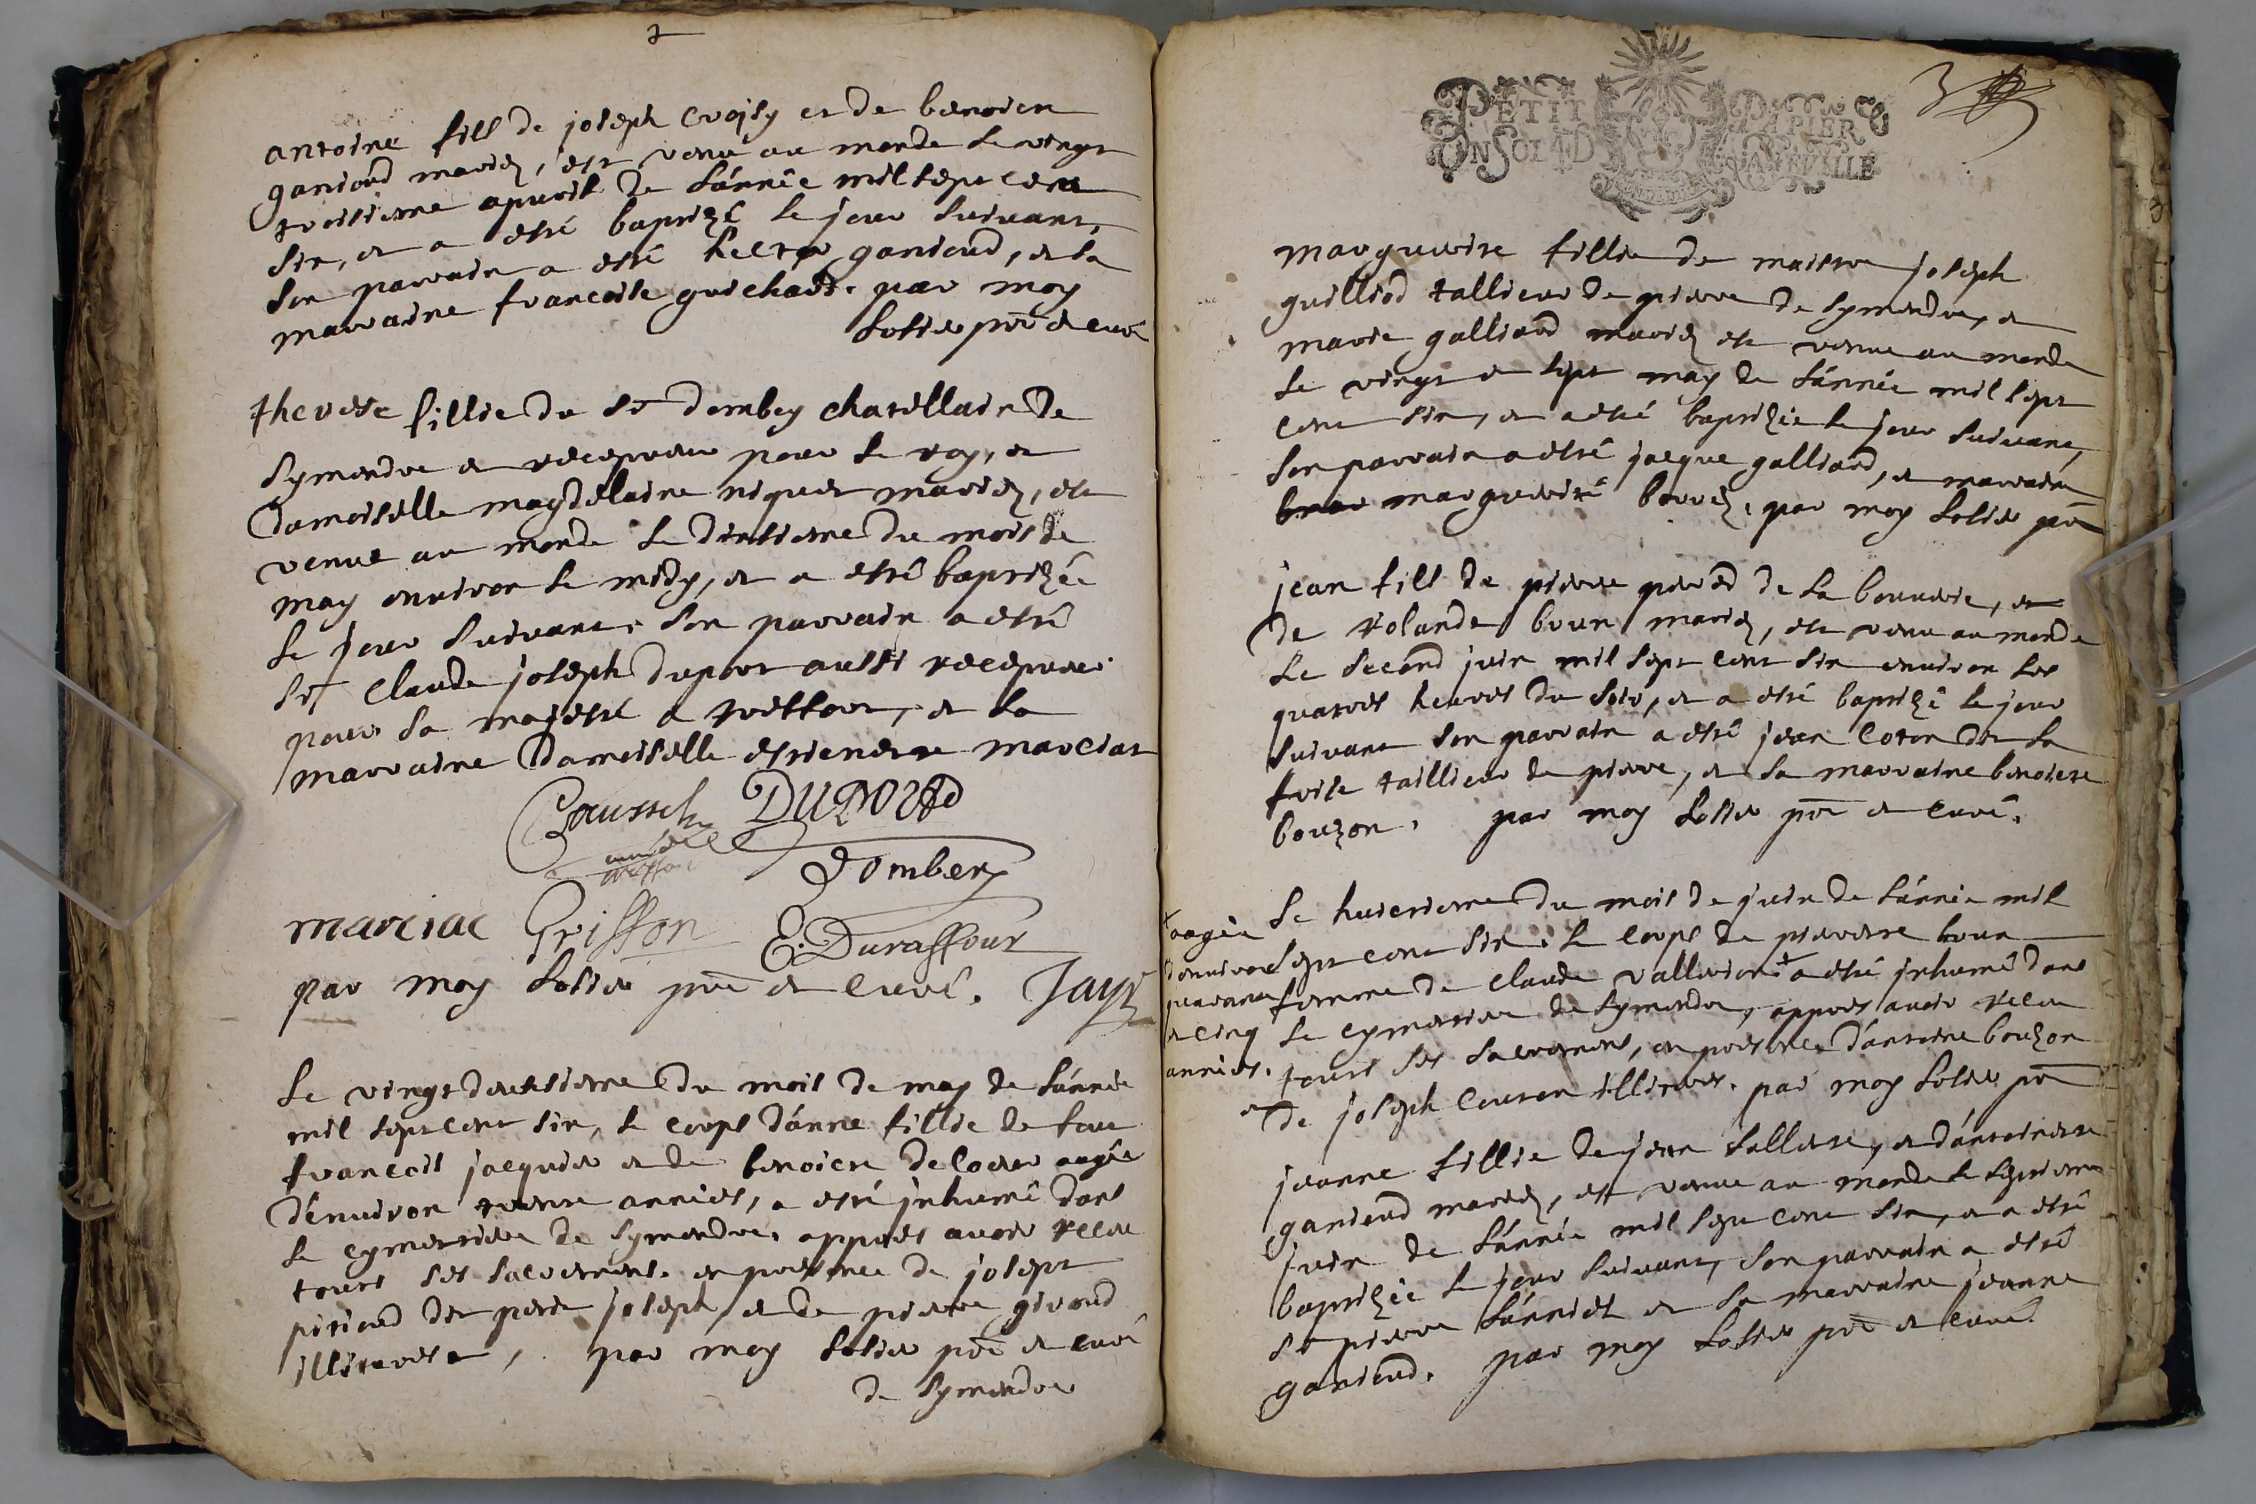 2
antoine fils de joseph croisy et de benoite
ganioud mariez, est venu au monde le vingt
troisieme apvril de l'année mil sept cent
six, et a esté baptizé le jour suivant,
son parrain a esté hector ganioud, et la
marraine francoise guichard. par moy
pre et curé
therese fillie du sr dombey chatellain de
symandre et recepveur pour le roy, et
damoiselle magdelaine niquet mariez, est
venue au monde le dixsieme du mois de
may environ le midy, et a esté baptizée
le jour suivant. son parrain a esté
sr claude joseph duport aussi recepveur
pour sa majesté a treffort, et la
marraine damoiselle estienette marciat
DUPORT
Dombey
marciat Grisson E. Duraffour
par moy pre et curé. Jayr
le vingt deuxsieme du mois de may de l'année
mil sept cent six, le corps d'anne fillie de feu
francois jacquier et de benoite aagée
d'environ trente années, a esté inhumé dans
le cymettiere de symandre, appres avoir receu
touts ses sacrements. en presence de josept
pitioud dit petit joseph, et de pierre giroud
illiterés, par moy pre et curé
de symandre
PETIT PAPIER
UN SOL 4 D LA FEUILLE
3
marguerite fillie de maistre joseph
guilliod tallieur de pierre de symandre, et
marie galliard mariez est venue au monde
le vingt et sept may de l'année mil sept
cent six, et a esté baptizée le jour suivant,
son parrain a esté jacque galliard, et marraine
marguerite borrez. par moy pre
jean fils de pierre perrod de la bouverie, et
de rolande brun mariez, est venu au monde
le second juin mil sept cent six environ les
quatres heures du soir, et a esté baptizé le jour
suivant son parrain a esté jean coton dit la
frise taillieur de pierre, et la marraine benoite
bouzon. par moy pre et curé.
le huictieme du mois de juin de l'année mil
sept cent six. le corps de pierrette brun
femme de claude vallerion + a esté inhumé dans
le cymettiere de symandre, appres avoir receu
touts ses sacrements, en presence d'antoine bouzon
et de joseph couton illiterés. par moy pre
+ aagée
d'environ
quarante
et cinq
années.
jeanne fillie de jean sallière, et d'antoinette
ganioud mariez, est venue au monde le septieme
juin de l'année mil sept cent six, et a esté
baptizée le jour suivant, son parrain a esté
sr pierre et la marraine jeanne
ganioud. par moy pre et curé